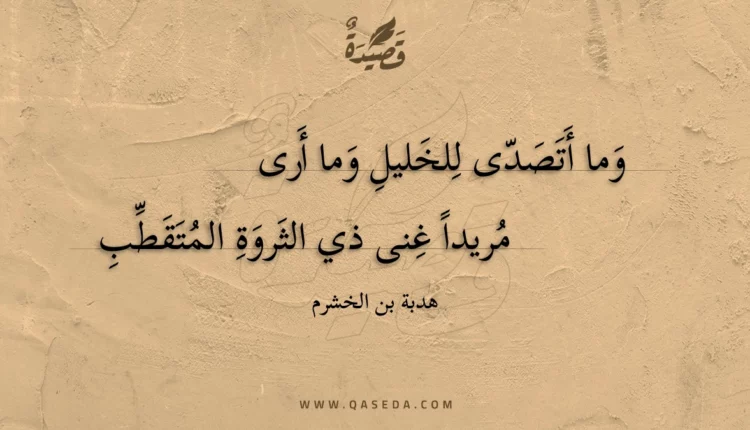 قَصِيدَةٌ
وَما أَتَصَدّى لِلخَليلِ وَما أَرى
مُريداً غِنى ذي الثَروَةِ المُتَقَطِّبِ
هدبة بن الخشرم
WWW.QASEDA.COM